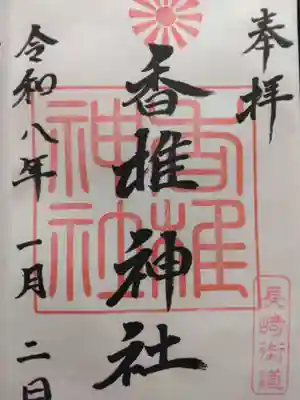 奉拝
香椎神社
香椎神社
長崎街道
令和八年 一月 二日